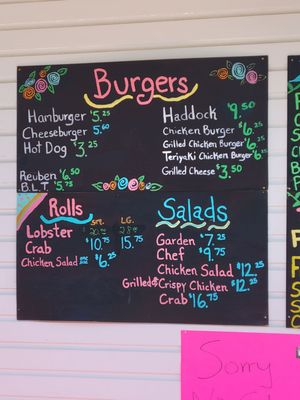 Burgers
Hamburger $5.25
Cheeseburger 5.60
Hot Dog $3.25
Reuben $6.50
B.L.T $5.75
Haddock $9.50
Chicken Burger $6.25
Grilled Chicken Burger $6.25
Teriyaki Chicken Burger $6.25
Grilled Cheese $3.50
Rolls
LG.
Lobster
Crab $10.75 15.75
Chicken Salad $6.25
Salads
Garden $7.25
Chef $9.75
Chicken Salad $12.25
Grilled Crispy Chicken $12.25
Crab $16.75
Sorry